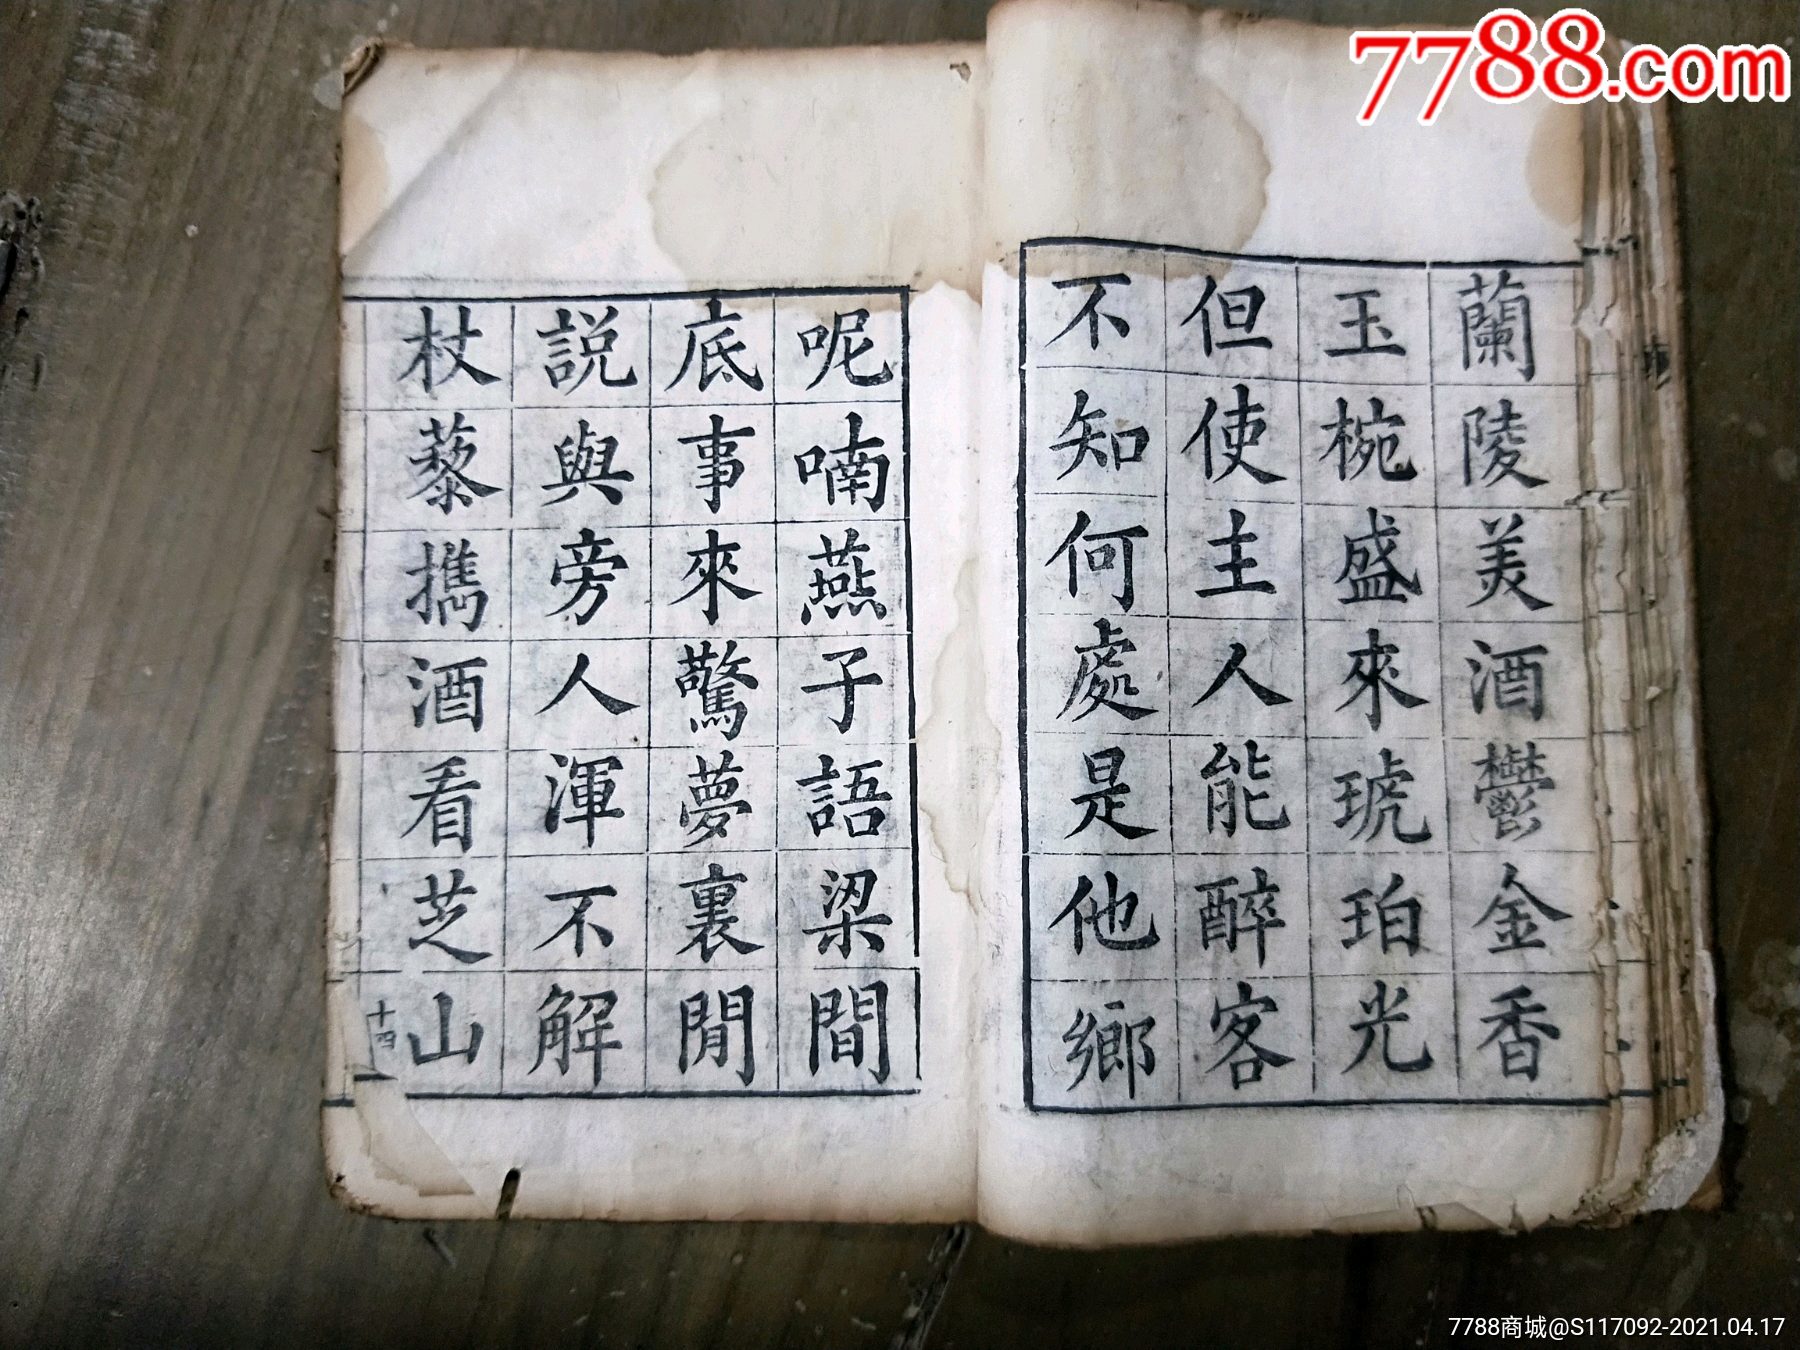 蘭陵美酒鬱金香
玉椀盛來琥珀光
但使主人能醉客
不知何處是他鄉
呢喃燕子語梁間
底事來驚夢裏閒
説與旁人渾不解
杖藜攜酒看芝山
十四
7788.com
7788商城@S117092-2021.04.17